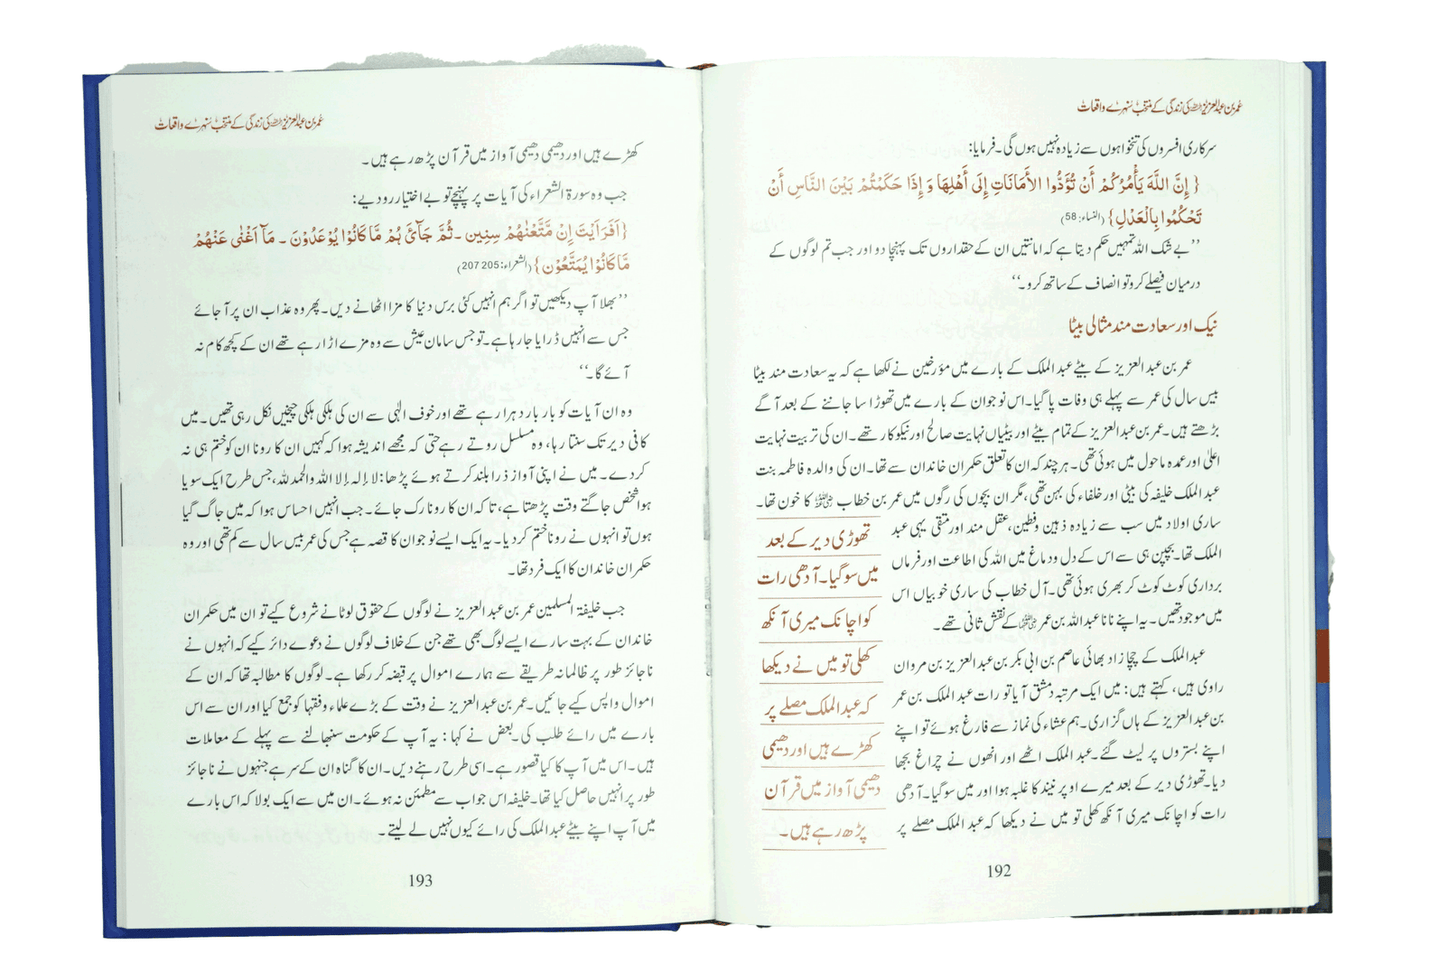 عمر بن عبدالعزیز رحمہ اللہ کی زندگی کے منتخب سنہرے واقعات
سرکاری افسروں کی تنخواہوں سے زیادہ نہیں ہوں گی۔ فرمایا:
{ إِنَّ اللَّهَ يَأْمُرُكُمْ أَنْ تُؤَدُّوا الأَمَانَاتِ إِلَى أَهْلِهَا وَ إِذَا حَكَمْتُمْ بَيْنَ النَّاسِ أَنْ
تَحْكُمُوا بِالْعَدْلِ} (النساء: 58)
’’بے شک اللہ تمہیں حکم دیتا ہے کہ امانتیں ان کے حقداروں تک پہنچا دو اور جب تم لوگوں کے
درمیان فیصلے کرو تو انصاف کے ساتھ کرو۔‘‘
نیک اور سعادت مند مثالی بیٹا
عمر بن عبد العزیز کے بیٹے عبد الملک کے بارے میں مؤرخین نے لکھا ہے کہ یہ سعادت مند بیٹا
بیس سال کی عمر سے پہلے ہی وفات پا گیا۔ اس نوجوان کے بارے میں تھوڑا سا جاننے کے بعد آگے
بڑھتے ہیں۔ عمر بن عبدالعزیز کے تمام بیٹے اور بیٹیاں نہایت صالح اور نیکوکار تھے۔ ان کی تربیت نہایت
اعلیٰ اور عمدہ ماحول میں ہوئی تھی۔ ہر چند کہ ان کا تعلق حکمران خاندان سے تھا۔ ان کی والدہ فاطمہ بنت
عبد الملک خلیفہ کی بیٹی اور خلفاء کی بہن تھی، مگر ان بچوں کی رگوں میں عمر بن خطاب رضی اللہ عنہ کا خون تھا۔
ساری اولاد میں سب سے زیادہ ذہین و فطین، عقل مند اور متقی یہی عبد
الملک تھا۔ بچپن ہی سے اس کے دل و دماغ میں اللہ کی اطاعت اور فرماں
برداری کوٹ کوٹ کر بھری ہوئی تھی۔ آل خطاب کی ساری خوبیاں اس
میں موجود تھیں۔ یہ اپنے نانا عبد اللہ بن عمر رضی اللہ عنہما کے نقش ثانی تھے۔
عبد الملک کے چچا زاد بھائی عاصم بن ابی بکر بن عبد العزیز بن مروان
راوی ہیں، کہتے ہیں: میں ایک مرتبہ دمشق آیا تو رات عبد الملک بن عمر
بن عبد العزیز کے ہاں گزاری۔ ہم عشاء کی نماز سے فارغ ہوئے تو اپنے
اپنے بستروں پر لیٹ گئے۔ عبد الملک اٹھے اور انھوں نے چراغ بجھا
دیا۔ تھوڑی دیر کے بعد میرے اوپر نیند کا غلبہ ہوا اور میں سو گیا۔ آدھی
رات کو اچانک میری آنکھ کھلی تو میں نے دیکھا کہ عبد الملک مصلے پر
تھوڑی دیر کے بعد
میں سو گیا۔ آدھی رات
کو اچانک میری آنکھ
کھلی تو میں نے دیکھا
کہ عبد الملک مصلے پر
کھڑے ہیں اور دھیمی
دھیمی آواز میں قرآن
پڑھ رہے ہیں۔
192
عمر بن عبدالعزیز رحمہ اللہ کی زندگی کے منتخب سنہرے واقعات
کھڑے ہیں اور دھیمی دھیمی آواز میں قرآن پڑھ رہے ہیں۔
جب وہ سورۃ الشعراء کی آیات پر پہنچے تو بے اختیار رو دیے:
{اَفَرَاَيْتَ اِنْ مَّتَّعْنٰهُمْ سِنِين ۔ ثُمَّ جَآئَ ہُمْ مَّا كَانُوْا يُوْعَدُوْنَ ۔ مَآ اَغْنٰى عَنْهُمْ
مَّا كَانُوْا يُمَتَّعُوْن} (الشعراء: 205 207)
’’بھلا آپ دیکھیں تو اگر ہم انہیں کئی برس دنیا کا مزا اٹھانے دیں۔ پھر وہ عذاب ان پر آ جائے
جس سے انہیں ڈرایا جا رہا ہے۔ تو جس سامان عیش سے وہ مزے اڑا رہے تھے ان کے کچھ کام نہ
آئے گا۔‘‘
وہ ان آیات کو بار بار دہرا رہے تھے اور خوف الٰہی سے ان کی ہلکی ہلکی چیخیں نکل رہی تھیں۔ میں
کافی دیر تک سنتا رہا، وہ مسلسل روتے رہے حتی کہ مجھے اندیشہ ہوا کہ کہیں ان کا رونا ان کو ختم ہی نہ
کر دے۔ میں نے اپنی آواز ذرا بلند کرتے ہوئے پڑھا: لا إلہ إلا اللہ والحمد للہ، جس طرح ایک سویا
ہوا شخص جاگتے وقت پڑھتا ہے، تاکہ ان کا رونا رک جائے۔ جب انہیں احساس ہوا کہ میں جاگ گیا
ہوں تو انہوں نے رونا ختم کر دیا۔ یہ ایک ایسے نوجوان کا قصہ ہے جس کی عمر بیس سال سے کم تھی اور وہ
حکمران خاندان کا ایک فرد تھا۔
جب خلیفۃ المسلمین عمر بن عبد العزیز نے لوگوں کے حقوق لوٹانے شروع کیے تو ان میں حکمران
خاندان کے بہت سارے ایسے لوگ بھی تھے جن کے خلاف لوگوں نے دعوے دائر کیے کہ انہوں نے
ناجائز طور پر ظالمانہ طریقے سے ہمارے اموال پر قبضہ کر رکھا ہے۔ لوگوں کا مطالبہ تھا کہ ان کے
اموال واپس کیے جائیں۔ عمر بن عبد العزیز نے وقت کے بڑے علماء و فقہا کو جمع کیا اور ان سے اس
بارے میں رائے طلب کی۔ بعض نے کہا: یہ آپ کے حکومت سنبھالنے سے پہلے کے معاملات
ہیں۔ اس میں آپ کا کیا قصور ہے۔ اسی طرح رہنے دیں۔ ان کا گناہ ان کے سر ہے جنہوں نے ناجائز
طور پر انہیں حاصل کیا تھا۔ خلیفہ اس جواب سے مطمئن نہ ہوئے۔ ان میں سے ایک بولا کہ اس بارے
میں آپ اپنے بیٹے عبد الملک کی رائے کیوں نہیں لے لیتے۔
193